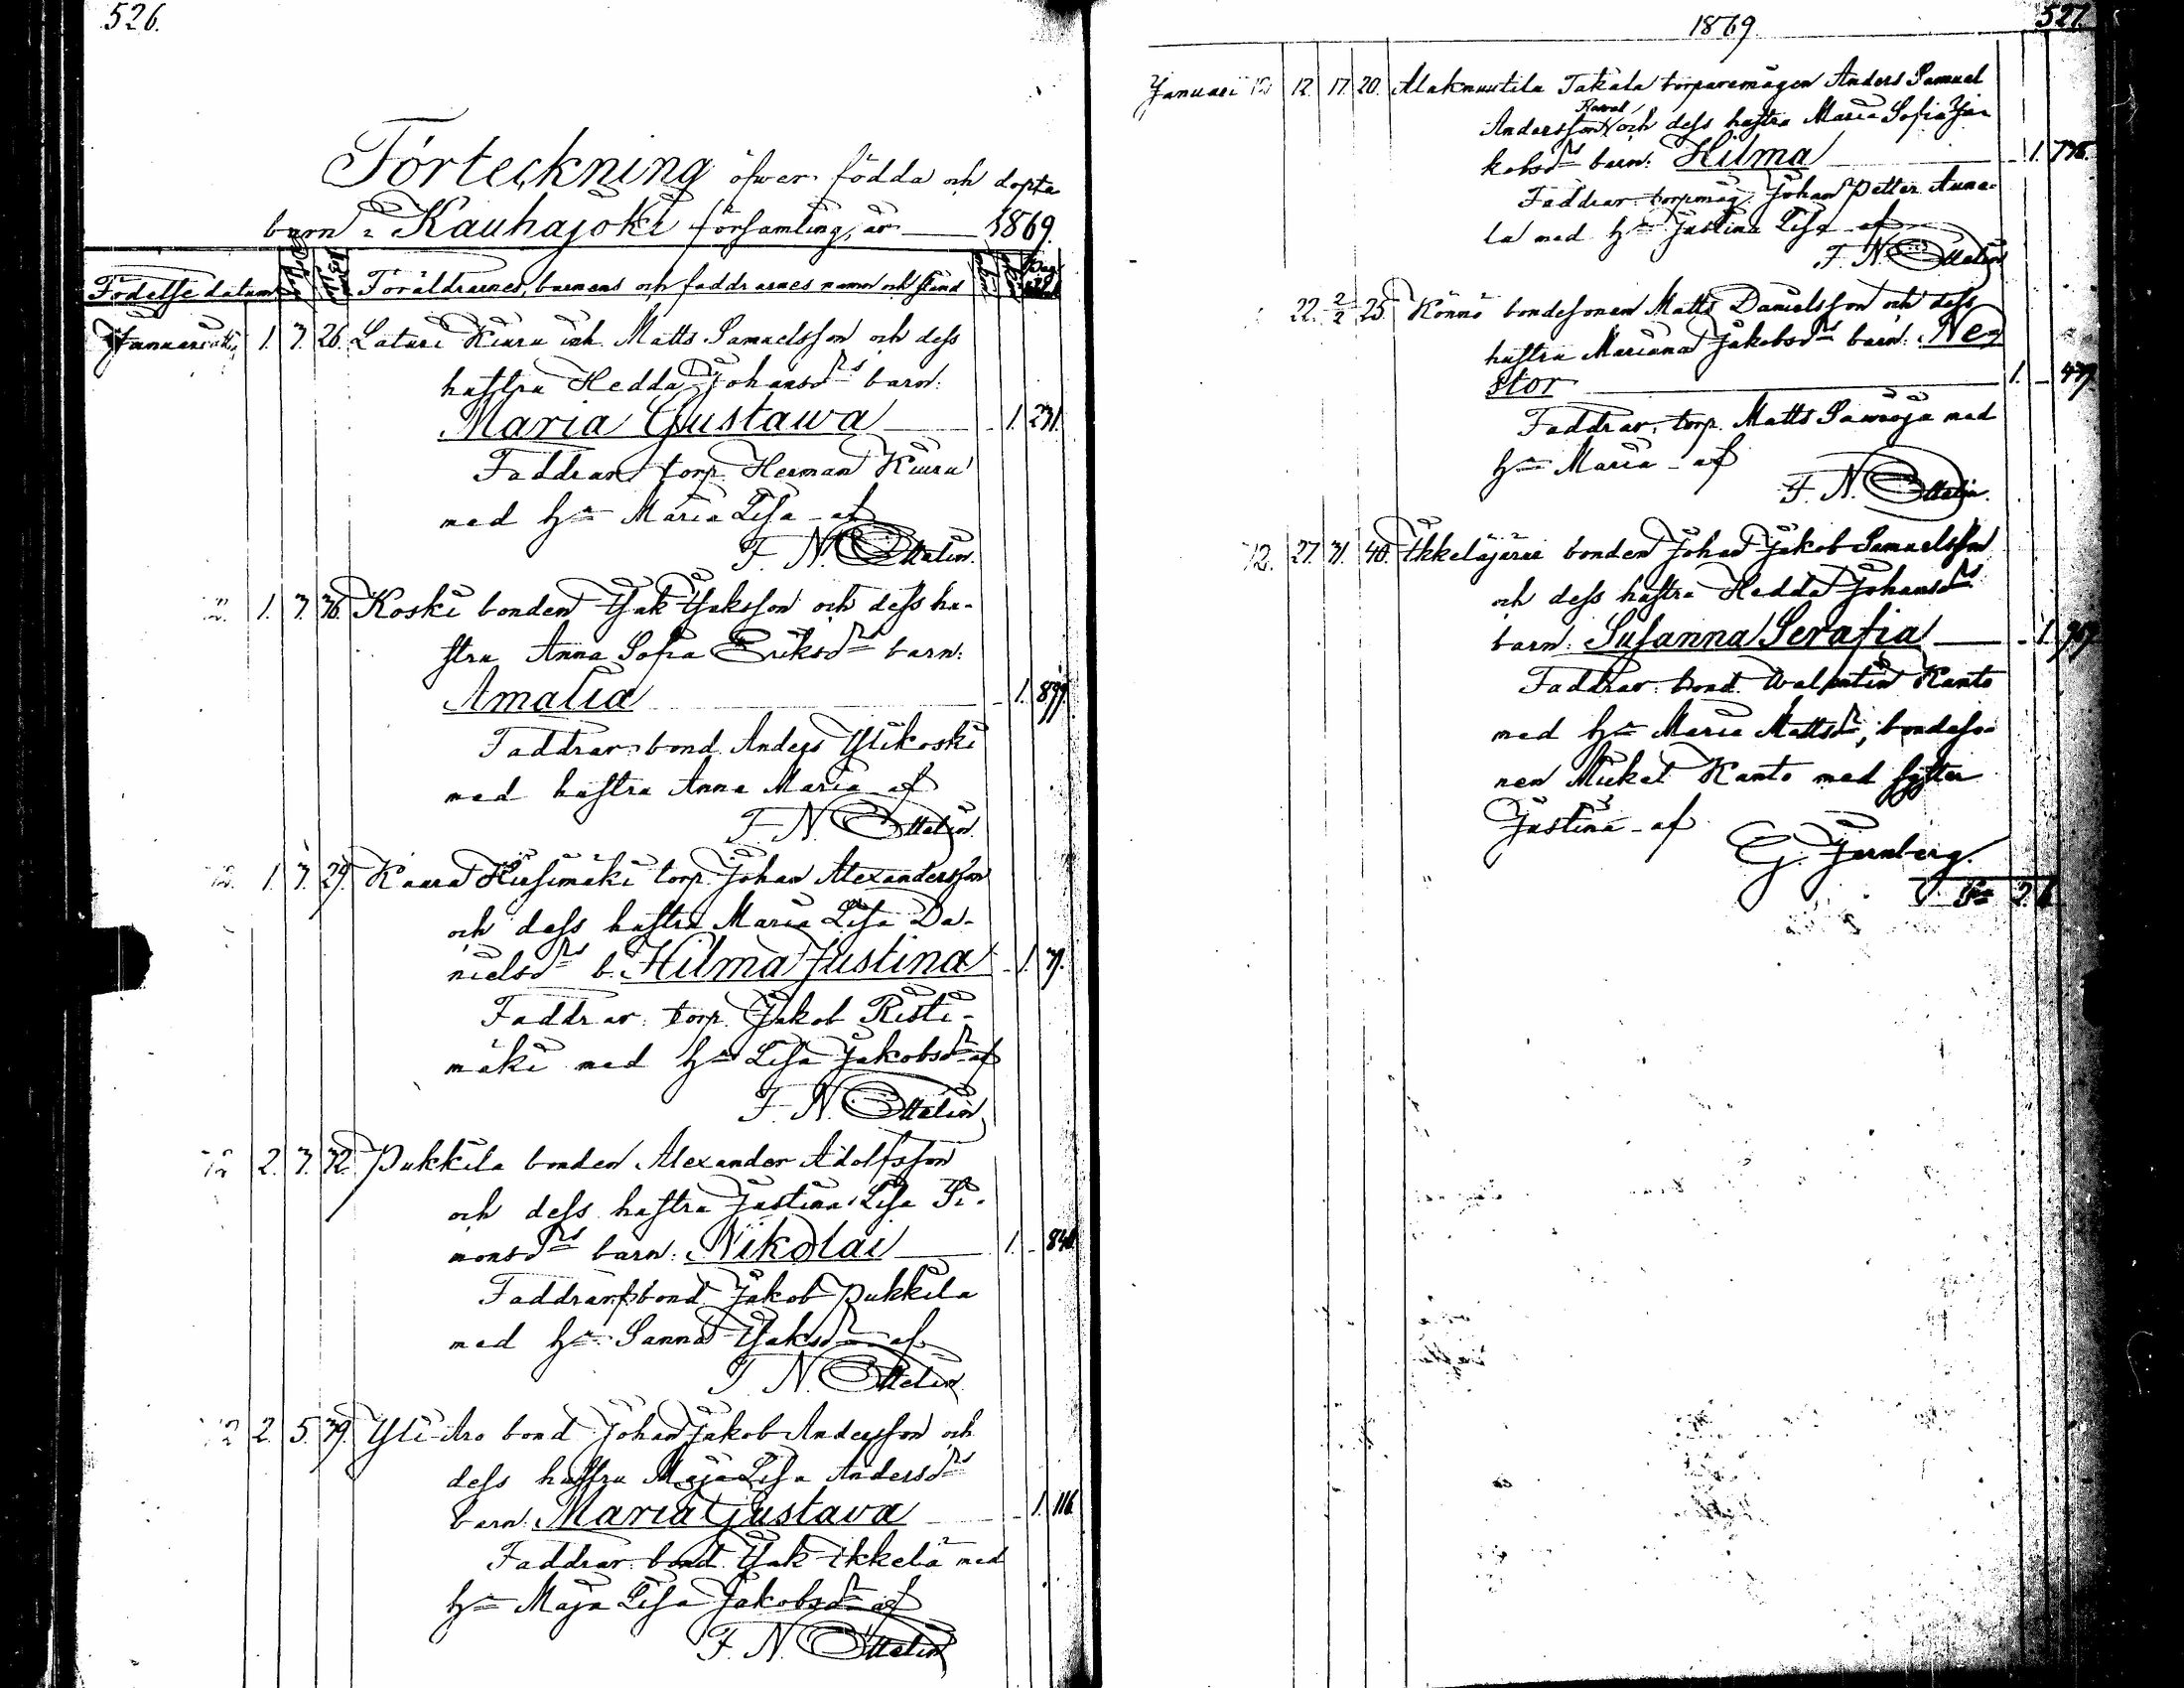 526.
Förteckning öfwer födda och döpta
barn i Kauhajoki församling, år 1869.
Födelse datum Föräldrarnes, barnens och faddrarnes namn och stånd
Januari 1. 3. 26. Laturi Kiuru inh. Matts Samuelsson och dess
hustru Hedda Johansdrs barn:
Maria Gustawa 1. 231.
Faddrar torp. Herman Kiuru
med hu Maria Lisa af
F. N. Ottelin.
1. 3. 36. Koski bonden Isak Isaksson och dess hu-
stru Anna Sofia Eriksdrs barn:
Amalia 1. 899.
Faddrar: bond. Anders Ylikoski
med hustru Anna Maria af
F. N. Ottelin.
1. 3. 29. Kaura Hirsimäki torp. Johan Alexandersson
och dess hustru Maria Lisa Da-
nielsdrs b. Hilma Justina 1. 31.
Faddrar: torp. Jakob Risti-
mäki med hu Lisa Jakobsdr af
F. N. Ottelin
2. 3. 32. Pukkila bonden Alexander Adolfsson
och dess hustru Justina Lisa Si-
monsdrs barn: Nikolai 1. 848.
Faddrar: bond. Jakob Pukkila
med hu Sanna Isaksdr af
F. N. Ottelin
2. 5. 39. Yli-Aro bond. Johan Jakob Andersson och
dess hustru Maja Lisa Andersdrs
barn: Maria Gustava 1. 116.
Faddrar: bond. Isak Ikkelä med
hu Maja Lisa Jakobsdr af
F. N. Ottelin
1869. 527.
Januari 12. 17. 20. Alaknuutila Takala torparemågen Anders Samuel
Andersson och dess hustru Maria Sofia Ja-
kobsdrs barn: Hilma 1. 738.
Faddrar: torpmåg. Johan Petter Anna-
la med hu Justina Lisa af
F. N. Ottelin
22. 2/2 25. Könnö bondesonen Matts Danielsson och dess
hustru Mariana Jakobsdrs barn: Ne-
stor 1. 439.
Faddrar: torp. Matts med
hu Maria af
F. N. Ottelin.
27. 31. 40. Ikkeläjärvi bonden Johan Jakob Samuelsson
och dess hustru Hedda Johansdrs
barn: Susanna Serafia 1. 969.
Faddrar: bond. Walentin Kanto
med hu Maria Mattsdr, bondeso-
nen Mickel Kanto med syster
Justina af
G. Jernberg.
Sa 2. 6.